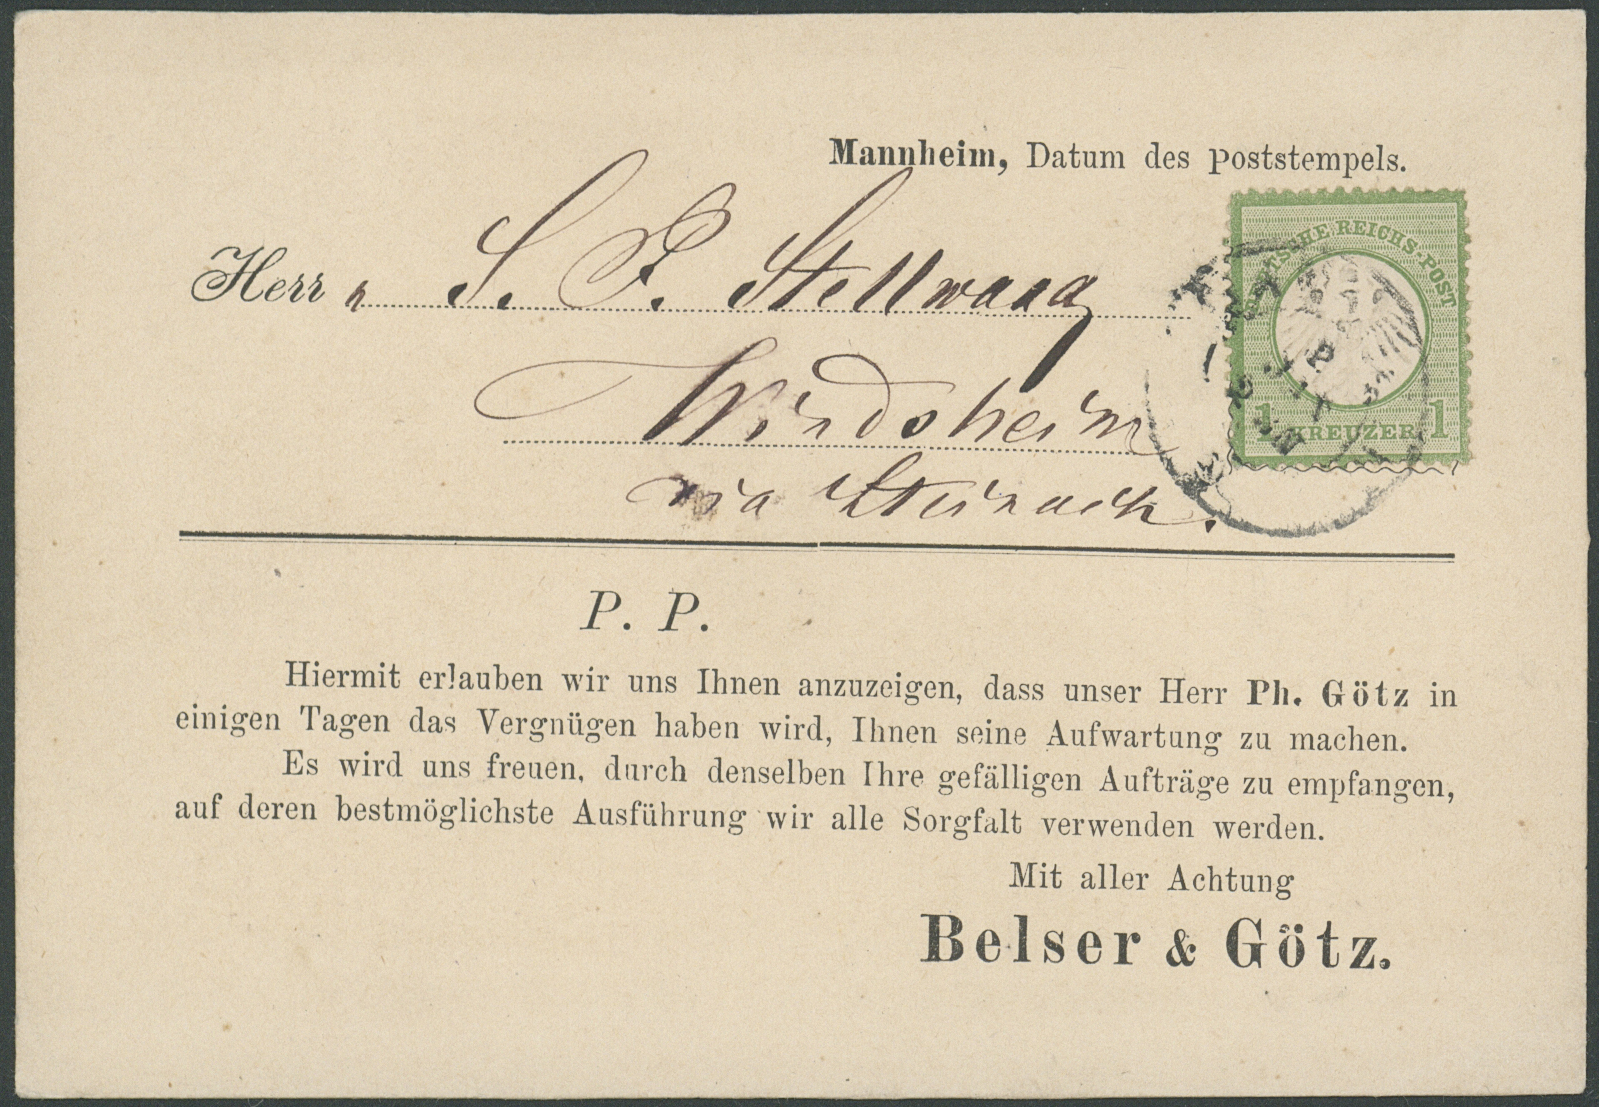 Mannheim, Datum des Poststempels.
Herrn S. F. Stellwaag
Windsheim
via Steinach.
DEUTSCHE REICHS-POST
1 KREUZER 1
P. P.
Hiermit erlauben wir uns Ihnen anzuzeigen, dass unser Herr Ph. Götz in
einigen Tagen das Vergnügen haben wird, Ihnen seine Aufwartung zu machen.
Es wird uns freuen, durch denselben Ihre gefälligen Aufträge zu empfangen,
auf deren bestmöglichste Ausführung wir alle Sorgfalt verwenden werden.
Mit aller Achtung
Belser & Götz.